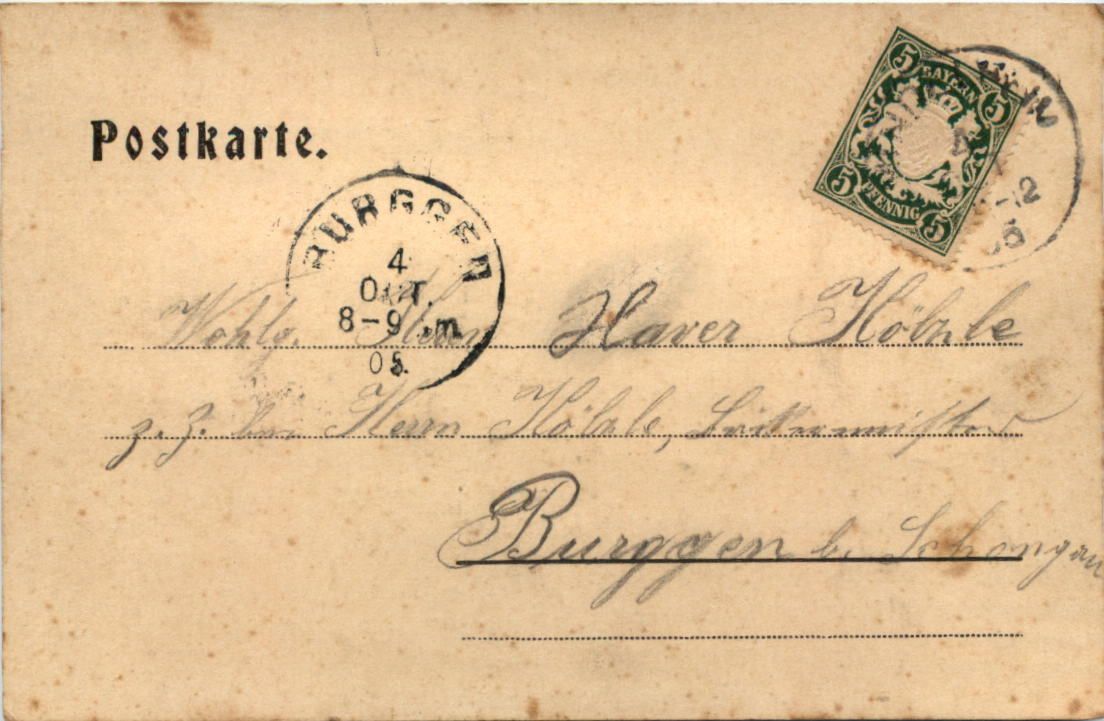 Postkarte.
5 BAYERN 5
5 PFENNIG 5
BURGGEN
4
OKT.
8-9 Vm
05.
Wohlg. Herrn Xaver Hölzle
z. Z. bei Herrn Hölzle,
Burggen b. Schongau